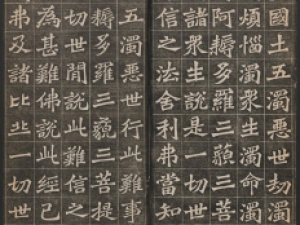 國土五濁惡世劫濁
煩惱濁衆生濁命濁
阿耨多羅三藐三菩
諸衆生說是一切世
信之法舍利弗當知
五濁惡世行此難事
耨多羅三藐三菩提
切世間說此難信之
為甚難佛說此經已
弗及諸比丘一切世